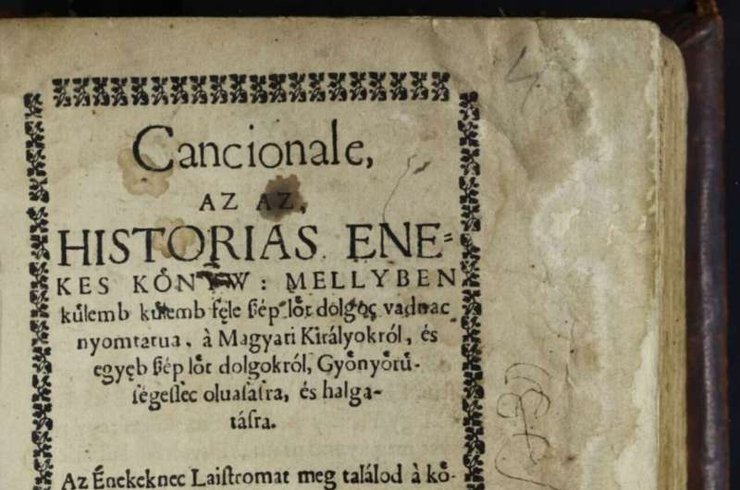 Cancionale,
AZ AZ,
HISTORIAS ENE-
KES KÖNYW: MELLYBEN
külemb külemb féle ſzép löt dolgoc vadnac
nyomtatua, à Magyari Királyokról, és
egyęb ſzép löt dolgokról, Gyönyörü-
ſégeſſec oluaſásra, és halga-
táſra.
Az Énekeknec Laiſtromat meg találod à kö-